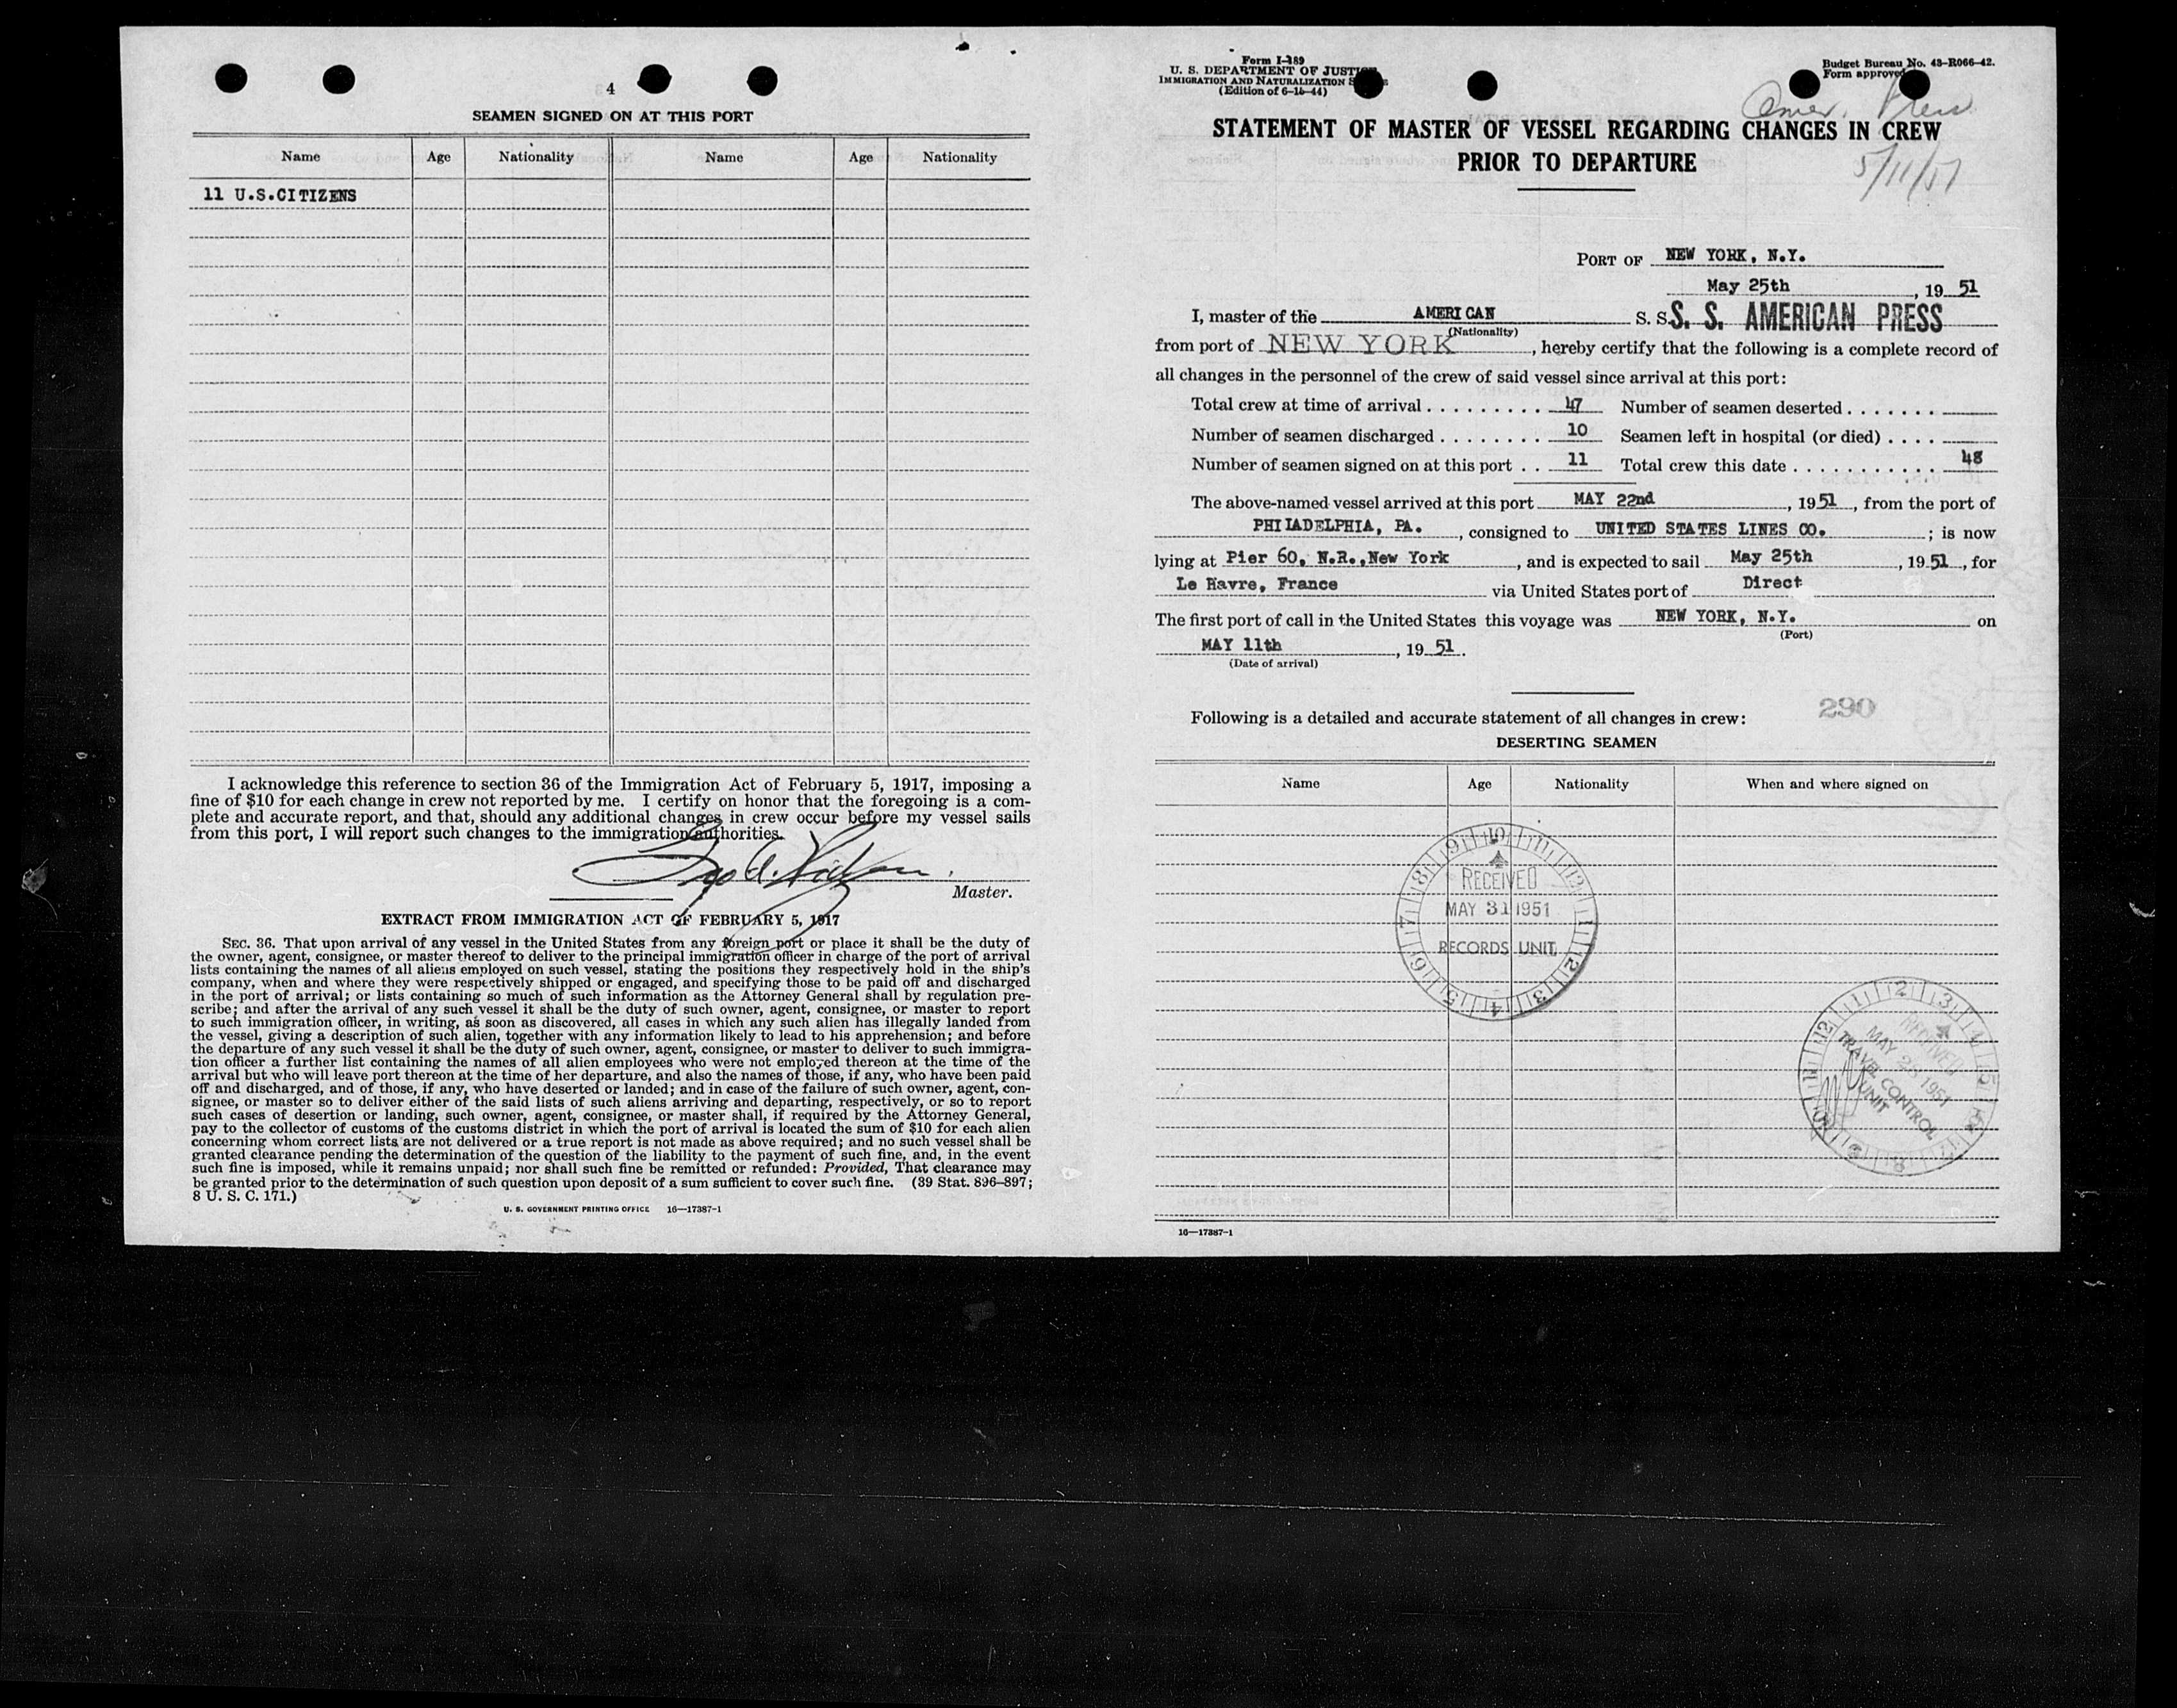 4
SEAMEN SIGNED ON AT THIS PORT
Name Age Nationality Name Age Nationality
11 U.S.CITIZENS
I acknowledge this reference to section 36 of the Immigration Act of February 5, 1917, imposing a
fine of $10 for each change in crew not reported by me. I certify on honor that the foregoing is a com-
plete and accurate report, and that, should any additional changes in crew occur before my vessel sails
from this port, I will report such changes to the immigration authorities.
Master.
EXTRACT FROM IMMIGRATION ACT OF FEBRUARY 5, 1917
SEC. 36. That upon arrival of any vessel in the United States from any foreign port or place it shall be the duty of
the owner, agent, consignee, or master thereof to deliver to the principal immigration officer in charge of the port of arrival
lists containing the names of all aliens employed on such vessel, stating the positions they respectively hold in the ship's
company, when and where they were respectively shipped or engaged, and specifying those to be paid off and discharged
in the port of arrival; or lists containing so much of such information as the Attorney General shall by regulation pre-
scribe; and after the arrival of any such vessel it shall be the duty of such owner, agent, consignee, or master to report
to such immigration officer, in writing, as soon as discovered, all cases in which any such alien has illegally landed from
the vessel, giving a description of such alien, together with any information likely to lead to his apprehension; and before
the departure of any such vessel it shall be the duty of such owner, agent, consignee, or master to deliver to such immigra-
tion officer a further list containing the names of all alien employees who were not employed thereon at the time of the
arrival but who will leave port thereon at the time of her departure, and also the names of those, if any, who have been paid
off and discharged, and of those, if any, who have deserted or landed; and in case of the failure of such owner, agent, con-
signee, or master so to deliver either of the said lists of such aliens arriving and departing, respectively, or so to report
such cases of desertion or landing, such owner, agent, consignee, or master shall, if required by the Attorney General,
pay to the collector of customs of the customs district in which the port of arrival is located the sum of $10 for each alien
concerning whom correct lists are not delivered or a true report is not made as above required; and no such vessel shall be
granted clearance pending the determination of the question of the liability to the payment of such fine, and, in the event
such fine is imposed, while it remains unpaid; nor shall such fine be remitted or refunded: Provided, That clearance may
be granted prior to the determination of such question upon deposit of a sum sufficient to cover such fine. (39 Stat. 896–897;
8 U. S. C. 171.)
U. S. GOVERNMENT PRINTING OFFICE 16—17387-1
Form I-489
U. S. DEPARTMENT OF JUSTICE
IMMIGRATION AND NATURALIZATION
(Edition of 6-15-44)
Budget Bureau No. 43-R066-42.
Form approved
Amer. Press
STATEMENT OF MASTER OF VESSEL REGARDING CHANGES IN CREW
PRIOR TO DEPARTURE
5/11/51
PORT OF NEW YORK, N.Y.
May 25th, 19 51
I, master of the AMERICAN S. S. S. S. AMERICAN PRESS
(Nationality)
from port of NEW YORK, hereby certify that the following is a complete record of
all changes in the personnel of the crew of said vessel since arrival at this port:
Total crew at time of arrival . . . . . . . . . 47 Number of seamen deserted . . . . . . .
Number of seamen discharged . . . . . . . . 10 Seamen left in hospital (or died) . . . .
Number of seamen signed on at this port . . 11 Total crew this date . . . . . . . . . . . 48
The above-named vessel arrived at this port MAY 22nd, 1951, from the port of
PHILADELPHIA, PA., consigned to UNITED STATES LINES CO.; is now
lying at Pier 60, N.R.,New York, and is expected to sail May 25th, 1951, for
Le Havre, France via United States port of Direct
The first port of call in the United States this voyage was NEW YORK, N.Y. on
(Port)
MAY 11th, 19 51.
(Date of arrival)
290
Following is a detailed and accurate statement of all changes in crew:
DESERTING SEAMEN
Name Age Nationality When and where signed on
RECEIVED
MAY 31 1951
RECORDS UNIT
RECEIVED
MAY 28 1951
TRAVEL CONTROL
UNIT
16—17387-1